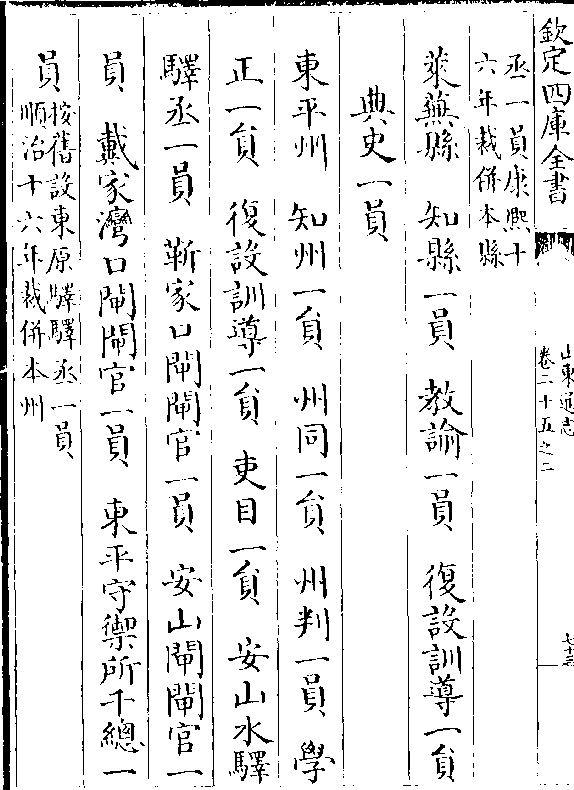 欽定四庫全書
山東通志
卷二十五之二
七十三
丞一員康熙十
六年裁併本縣
萊蕪縣 知縣一員 教諭一員 復設訓導一員
典史一員
東平州 知州一員 州同一員 州判一員 學
正一員 復設訓導一員 吏目一員 安山水驛
驛丞一員 靳家口閘閘官一員 安山閘閘官一
員 戴家灣口閘閘官一員 東平守禦所千總一
員
按舊設東原驛驛丞一員
順治十六年裁併本州